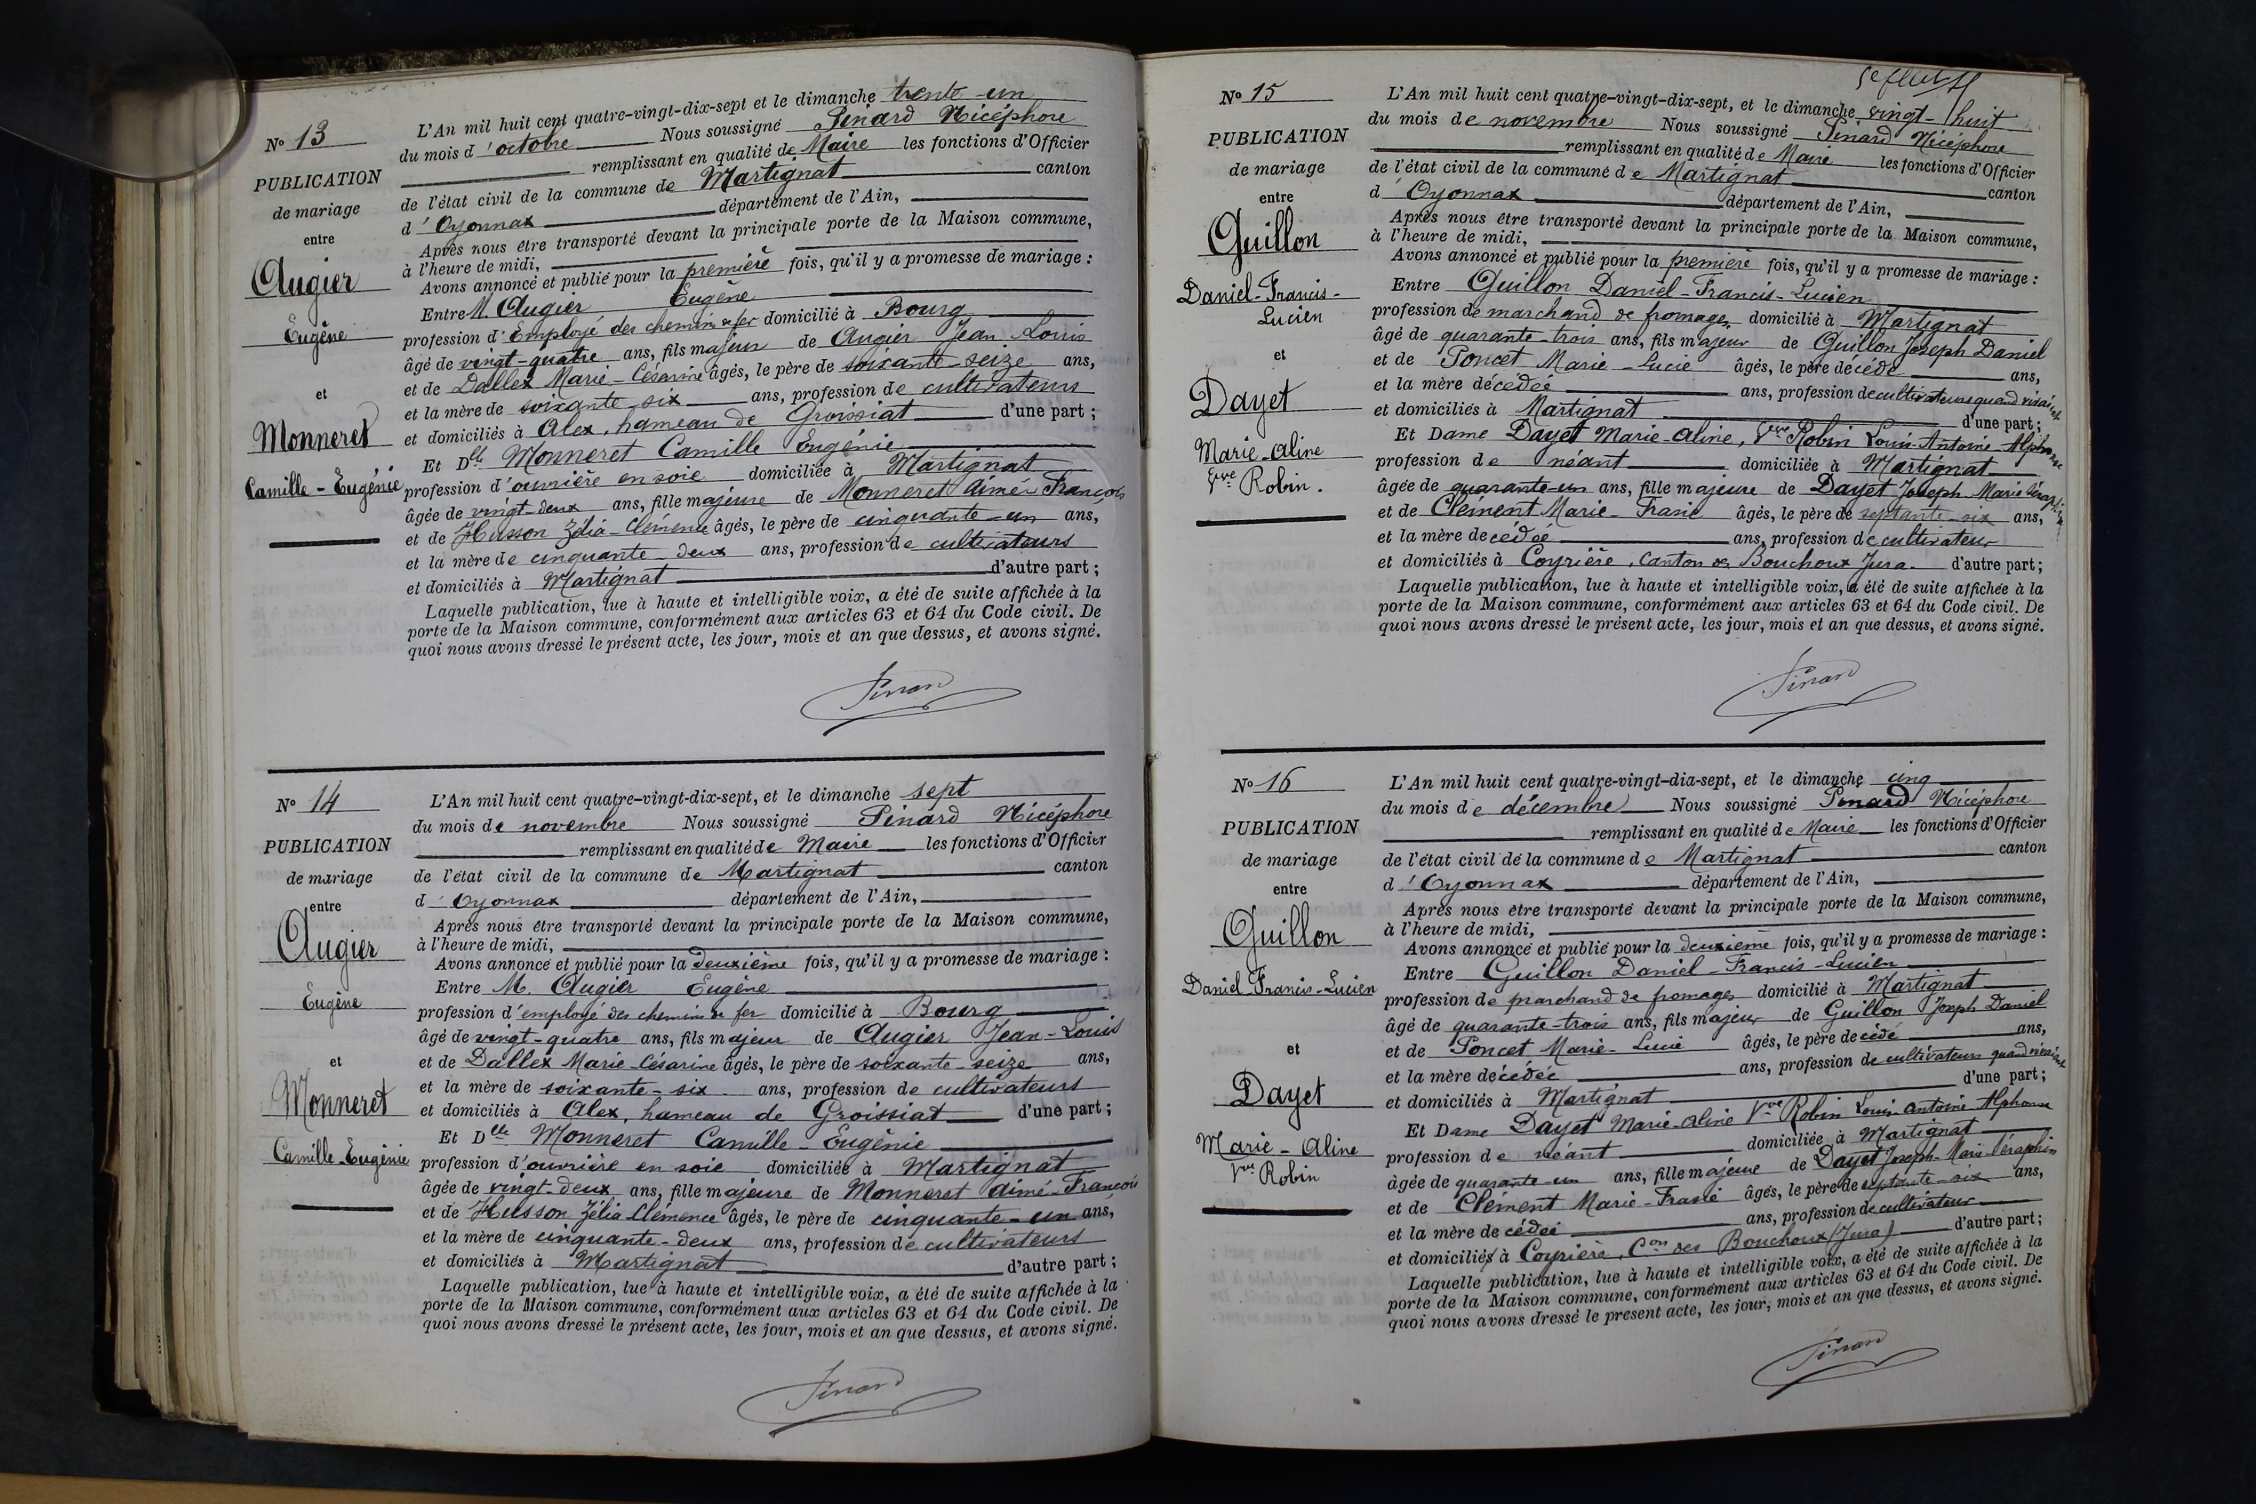 N° 13
PUBLICATION
de mariage
entre
Augier
Eugène
et
Monneret
Camille - Eugénie
L'An mil huit cent quatre-vingt-dix-sept et le dimanche trente-un
du mois d'octobre Nous soussigné Pinard Nicéphore
remplissant en qualité de Maire les fonctions d'Officier
de l'état civil de la commune de Martignat canton
d'Oyonnax département de l'Ain,
Après nous être transporté devant la principale porte de la Maison commune,
à l'heure de midi,
Avons annoncé et publié pour la première fois, qu'il y a promesse de mariage :
Entre M. Augier Eugène
profession d'Employé des chemins de fer domicilié à Bourg
âgé de vingt-quatre ans, fils majeur de Augier Jean Louis
et de Dallex Marie-Césarine âgés, le père de soixante-seize ans,
et la mère de soixante six ans, profession de cultivateurs
et domiciliés à Alex, hameau de Groissiat d'une part ;
Et Dlle Monneret Camille Eugénie
profession d'ouvrière en soie domiciliée à Martignat
âgée de vingt-deux ans, fille majeure de Monneret Aimé-François
et de Husson Zélia-Clémence âgés, le père de cinquante-un ans,
et la mère de cinquante-deux ans, profession de cultivateurs
et domiciliés à Martignat d'autre part ;
Laquelle publication, lue à haute et intelligible voix, a été de suite affichée à la
porte de la Maison commune, conformément aux articles 63 et 64 du Code civil. De
quoi nous avons dressé le présent acte, les jour, mois et an que dessus, et avons signé.
Pinard
N° 14
PUBLICATION
de mariage
entre
Augier
Eugène
et
Monneret
Camille-Eugénie
L'An mil huit cent quatre-vingt-dix-sept, et le dimanche sept
du mois de novembre Nous soussigné Pinard Nicéphore
remplissant en qualité de Maire les fonctions d'Officier
de l'état civil de la commune de Martignat canton
d'Oyonnax département de l'Ain,
Après nous être transporté devant la principale porte de la Maison commune,
à l'heure de midi,
Avons annoncé et publié pour la deuxième fois, qu'il y a promesse de mariage :
Entre M. Augier Eugène
profession d'employé des chemins de fer domicilié à Bourg
âgé de vingt-quatre ans, fils majeur de Augier Jean-Louis
et de Dallex Marie-Césarine âgés, le père de soixante-seize ans,
et la mère de soixante-six ans, profession de cultivateurs
et domiciliés à Alex, hameau de Groissiat d'une part ;
Et Dlle Monneret Camille-Eugénie
profession d'ouvrière en soie domiciliée à Martignat
âgée de vingt-deux ans, fille majeure de Monneret Aimé-François
et de Husson Zélia-Clémence âgés, le père de cinquante-un ans,
et la mère de cinquante-deux ans, profession de cultivateurs
et domiciliés à Martignat d'autre part ;
Laquelle publication, lue à haute et intelligible voix, a été de suite affichée à la
porte de la Maison commune, conformément aux articles 63 et 64 du Code civil. De
quoi nous avons dressé le présent acte, les jour, mois et an que dessus, et avons signé.
Pinard
N° 15
PUBLICATION
de mariage
entre
Guillon
Daniel-Francis-
Lucien
et
Dayet
Marie-Aline
Vve Robin.
L'An mil huit cent quatre-vingt-dix-sept, et le dimanche vingt-huit
du mois de novembre Nous soussigné Pinard Nicéphore
remplissant en qualité de Maire les fonctions d'Officier
de l'état civil de la commune de Martignat canton
d'Oyonnax département de l'Ain,
Après nous être transporté devant la principale porte de la Maison commune,
à l'heure de midi,
Avons annoncé et publié pour la première fois, qu'il y a promesse de mariage :
Entre Guillon Daniel-Francis-Lucien
profession de marchand de fromages domicilié à Martignat
âgé de quarante-trois ans, fils majeur de Guillon Joseph Daniel
et de Poncet Marie-Lucie âgés, le père décédé ans,
et la mère décédée ans, profession de cultivateurs quand vivaient
et domiciliés à Martignat d'une part ;
Et Dame Dayet Marie-Aline, Vve Robin Louis-Antoine-Alphonse
profession de néant domiciliée à Martignat
âgée de quarante-un ans, fille majeure de Dayet Joseph Marie Séraphin
et de Clément Marie-Frasie âgés, le père de septante-six ans,
et la mère décédée ans, profession de cultivateur
et domiciliés à Coyrière, canton des Bouchoux Jura. d'autre part ;
Laquelle publication, lue à haute et intelligible voix, a été de suite affichée à la
porte de la Maison commune, conformément aux articles 63 et 64 du Code civil. De
quoi nous avons dressé le présent acte, les jour, mois et an que dessus, et avons signé.
Pinard
N° 16
PUBLICATION
de mariage
entre
Guillon
Daniel Francis-Lucien
et
Dayet
Marie-Aline
Vve Robin
L'An mil huit cent quatre-vingt-dia-sept, et le dimanche cinq
du mois de décembre Nous soussigné Pinard Nicéphore
remplissant en qualité de Maire les fonctions d'Officier
de l'état civil de la commune de Martignat canton
d'Oyonnax département de l'Ain,
Après nous être transporté devant la principale porte de la Maison commune,
à l'heure de midi,
Avons annoncé et publié pour la deuxième fois, qu'il y a promesse de mariage :
Entre Guillon Daniel-Francis-Lucien
profession de marchand de fromages domicilié à Martignat
âgé de quarante-trois ans, fils majeur de Guillon Joseph Daniel
et de Poncet Marie-Lucie âgés, le père de cédé ans,
et la mère décédée ans, profession de cultivateurs quand vivaient
et domiciliés à Martignat d'une part ;
Et Dame Dayet Marie-Aline Vve Robin Louis-Antoine Alphonse
profession de néant domiciliée à Martignat
âgée de quarante-un ans, fille majeure de Dayet Joseph-Marie-Séraphin
et de Clément Marie-Frasie âgés, le père de septante-six ans,
et la mère de cédée ans, profession de cultivateur
et domiciliés à Coyrière, Con des Bouchoux (Jura) d'autre part ;
Laquelle publication, lue à haute et intelligible voix, a été de suite affichée à la
porte de la Maison commune, conformément aux articles 63 et 64 du Code civil. De
quoi nous avons dressé le présent acte, les jour, mois et an que dessus, et avons signé.
Pinard